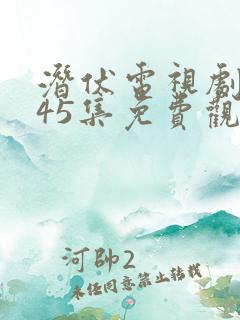 潛伏電視劇
45集免費觀
河帥2
未經同意禁止轉載